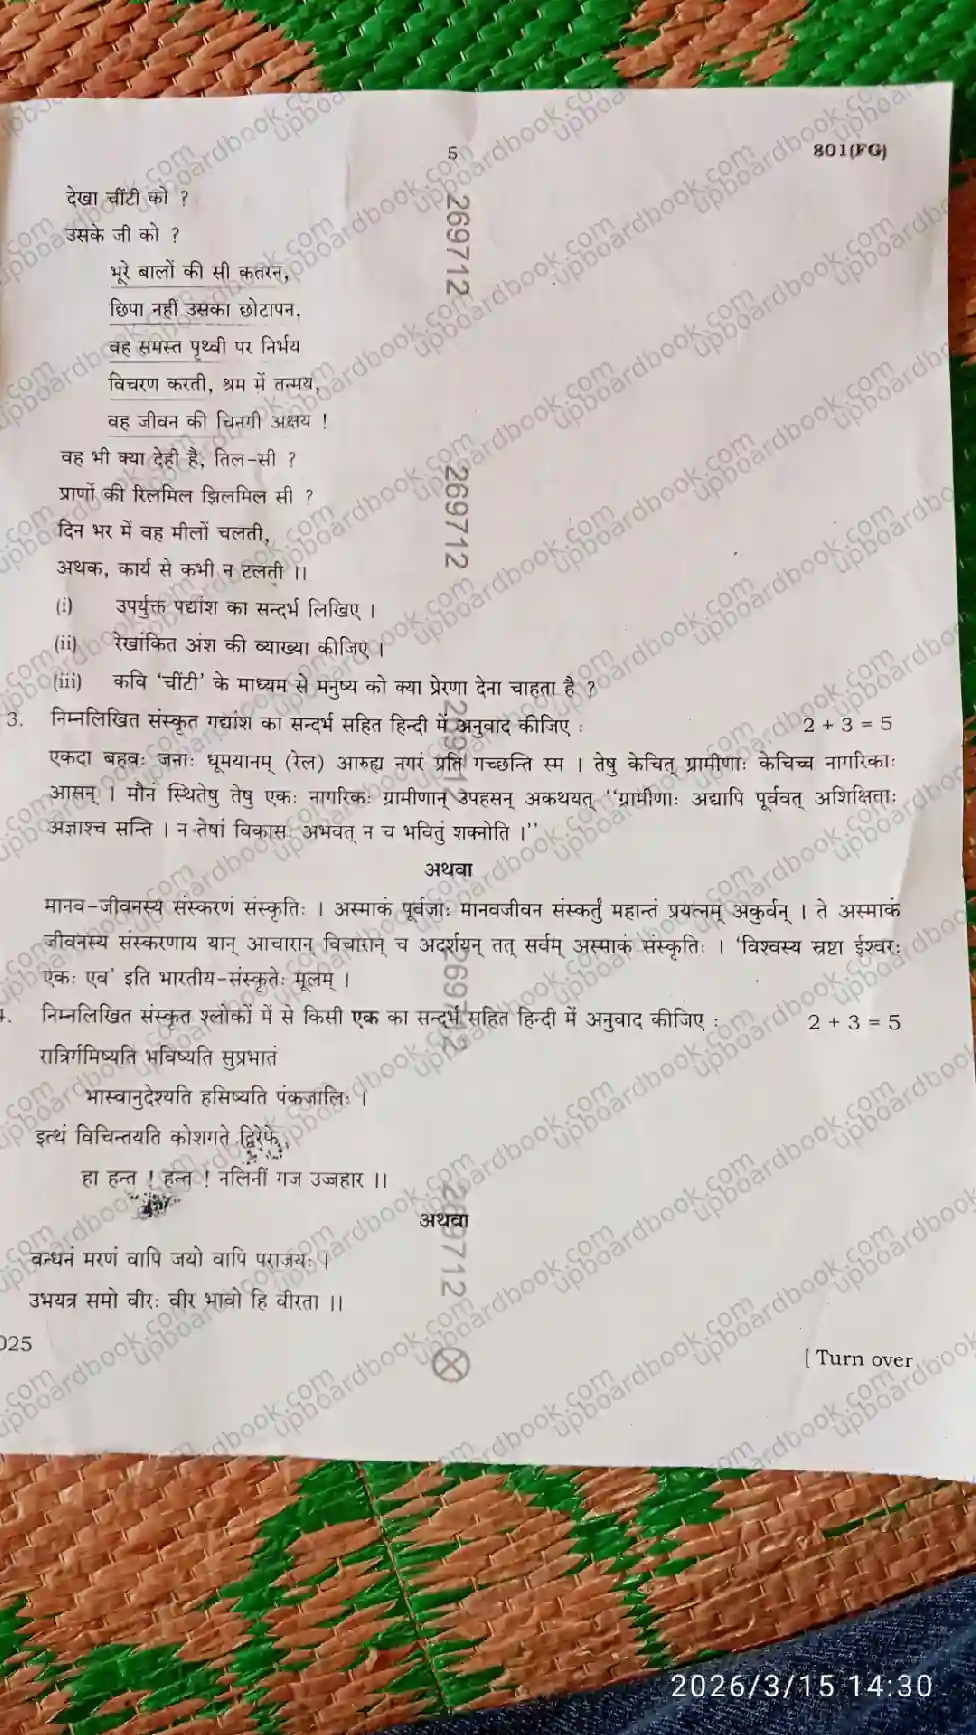 5
801(FG)
देखा चींटी को ?
उसके जी को ?
भूरे बालों की सी कतरन,
छिपा नहीं उसका छोटापन,
वह समस्त पृथ्वी पर निर्भय
विचरण करती, श्रम में तन्मय,
वह जीवन की चिनगी अक्षय !
वह भी क्या देही है, तिल-सी ?
प्राणों की रिलमिल झिलमिल सी ?
दिन भर में वह मीलों चलती,
अथक, कार्य से कभी न टलती ।।
(i) उपर्युक्त पद्यांश का सन्दर्भ लिखिए ।
(ii) रेखांकित अंश की व्याख्या कीजिए ।
(iii) कवि ‘चींटी’ के माध्यम से मनुष्य को क्या प्रेरणा देना चाहता है ?
3. निम्नलिखित संस्कृत गद्यांश का सन्दर्भ सहित हिन्दी में अनुवाद कीजिए : 2 + 3 = 5
एकदा बहवः जनाः धूमयानम् (रेल) आरुह्य नगरं प्रति गच्छन्ति स्म । तेषु केचित् ग्रामीणाः केचिच्च नागरिकाः
आसन् । मौनं स्थितेषु तेषु एकः नागरिकः ग्रामीणान् उपहसन् अकथयत् “ग्रामीणाः अद्यापि पूर्ववत् अशिक्षिताः
अज्ञाश्च सन्ति । न तेषां विकासः अभवत् न च भवितुं शक्नोति ।”
अथवा
मानव-जीवनस्य संस्करणं संस्कृतिः । अस्माकं पूर्वजाः मानवजीवन संस्कर्तुं महान्तं प्रयत्नम् अकुर्वन् । ते अस्माकं
जीवनस्य संस्करणाय यान् आचारान् विचारान् च अदर्शयन् तत् सर्वम् अस्माकं संस्कृतिः । ‘विश्वस्य स्रष्टा ईश्वरः
एकः एव’ इति भारतीय-संस्कृतेः मूलम् ।
4. निम्नलिखित संस्कृत श्लोकों में से किसी एक का सन्दर्भ सहित हिन्दी में अनुवाद कीजिए : 2 + 3 = 5
रात्रिर्गमिष्यति भविष्यति सुप्रभातं
भास्वानुदेश्यति हसिष्यति पंकजालिः ।
इत्थं विचिन्तयति कोशगते द्विरेफे,
हा हन्त ! हन्त ! नलिनीं गज उज्जहार ।।
अथवा
बन्धनं मरणं वापि जयो वापि पराजयः ।
उभयत्र समो वीरः वीर भावो हि वीरता ।।
025
[ Turn over
269712
269712
269712
269712
269712
upboardbook.com
2026/3/15 14:30